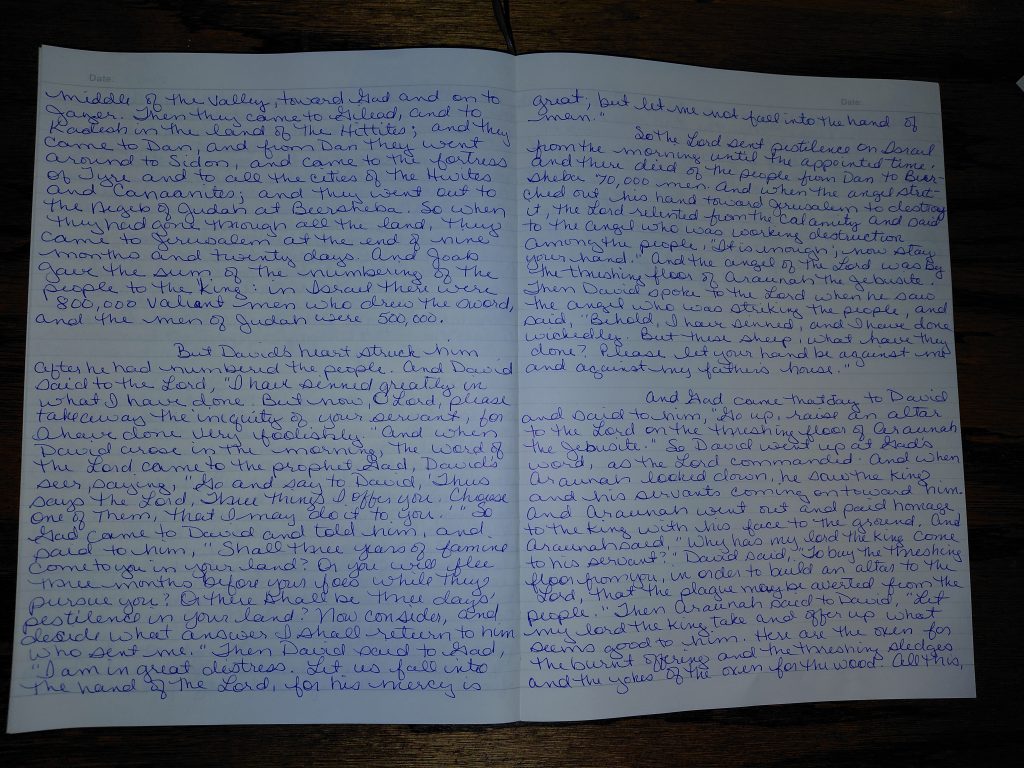 Date:
middle of the valley, toward Gad and on to
Jazer. Then they came to Gilead, and to
Kadesh in the land of the Hittites; and they
came to Dan, and from Dan they went
around to Sidon, and came to the fortress
of Tyre and to all the cities of the Hivites
and Canaanites; and they went out to
the Negeb of Judah at Beersheba. So when
they had gone through all the land, they
came to Jerusalem at the end of nine
months and twenty days. And Joab
gave the sum of the numbering of the
people to the King: in Israel there were
800,000 valiant men who drew the sword,
and the men of Judah were 500,000.
But David's heart struck him
after he had numbered the people. And David
said to the Lord, "I have sinned greatly in
what I have done. But now, O Lord, please
take away the iniquity of your servant, for
I have done very foolishly." And when
David arose in the morning, the word of
the Lord came to the prophet Gad, David's
seer, saying, "Go and say to David, 'Thus
says the Lord, Three things I offer you. Choose
one of them, that I may do it to you.'" So
Gad came to David and told him, and
said to him, "Shall three years of famine
come to you in your land? Or you will flee
three months before your foes while they
pursue you? Or there shall be three days'
pestilence in your land? Now consider, and
decide what answer I shall return to him
who sent me." Then David said to Gad,
"I am in great distress. Let us fall into
the hand of the Lord, for his mercy is
Date:
great; but let me not fall into the hand of
man."
So the Lord sent pestilence on Israel
from the morning until the appointed time.
and there died of the people from Dan to Beer-
sheba 70,000 men. And when the angel stret-
ched out his hand toward Jerusalem to destroy
it, the Lord relented from the calamity and said
to the angel who was working destruction
among the people, "It is enough; now stay
your hand." And the angel of the Lord was by
the threshing floor of Araunah the Jebusite.
Then David spoke to the Lord when he saw
the angel who was striking the people, and
said, "Behold, I have sinned, and I have done
wickedly. But these sheep, what have they
done? Please let your hand be against me
and against my fathers house."
And Gad came that day to David
and said to him, "Go up, raise an altar
to the Lord on the threshing floor of Araunah
the Jebusite." So David went up at Gad's
word, as the Lord commanded. And when
Araunah looked down, he saw the King
and his servants coming on toward him.
And Araunah went out and paid homage
to the King with his face to the ground. And
Araunah said, "Why has my lord the king come
to his servant?" David said, "To buy the threshing
floor from you, in order to build an altar to the
Lord, that the plague may be averted from the
people." Then Araunah said to David, "Let
my lord the king take and offer up what
seems good to him. Here are the oxen for
the burnt offering and the threshing sledges
and the yokes of the oxen for the wood. All this,